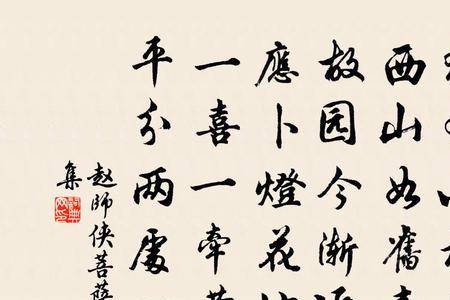 西山如舊
故园今渐
應卜燈花
一喜一牽
平分兩處
赵師侠菩薩
集